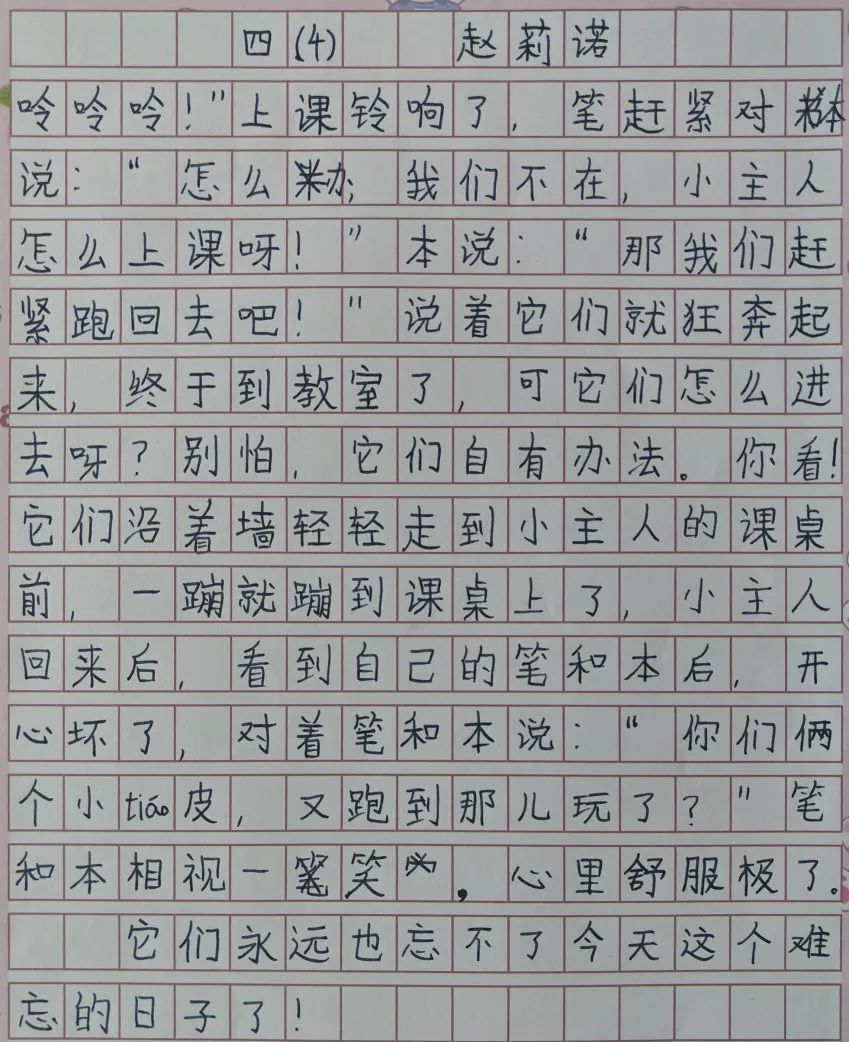 四(4) 赵莉诺
呤呤呤!”上课铃响了,笔赶紧对本
说:“怎么办,我们不在,小主人
怎么上课呀!”本说:“那我们赶
紧跑回去吧!”说着它们就狂奔起
来,终于到教室了,可它们怎么进
去呀?别怕,它们自有办法。你看!
它们沿着墙轻轻走到小主人的课桌
前,一蹦就蹦到课桌上了,小主人
回来后,看到自己的笔和本后,开
心坏了,对着笔和本说:“你们俩
个小tiáo皮,又跑到那儿玩了?”笔
和本相视一笑,心里舒服极了。
它们永远也忘不了今天这个难
忘的日子了!